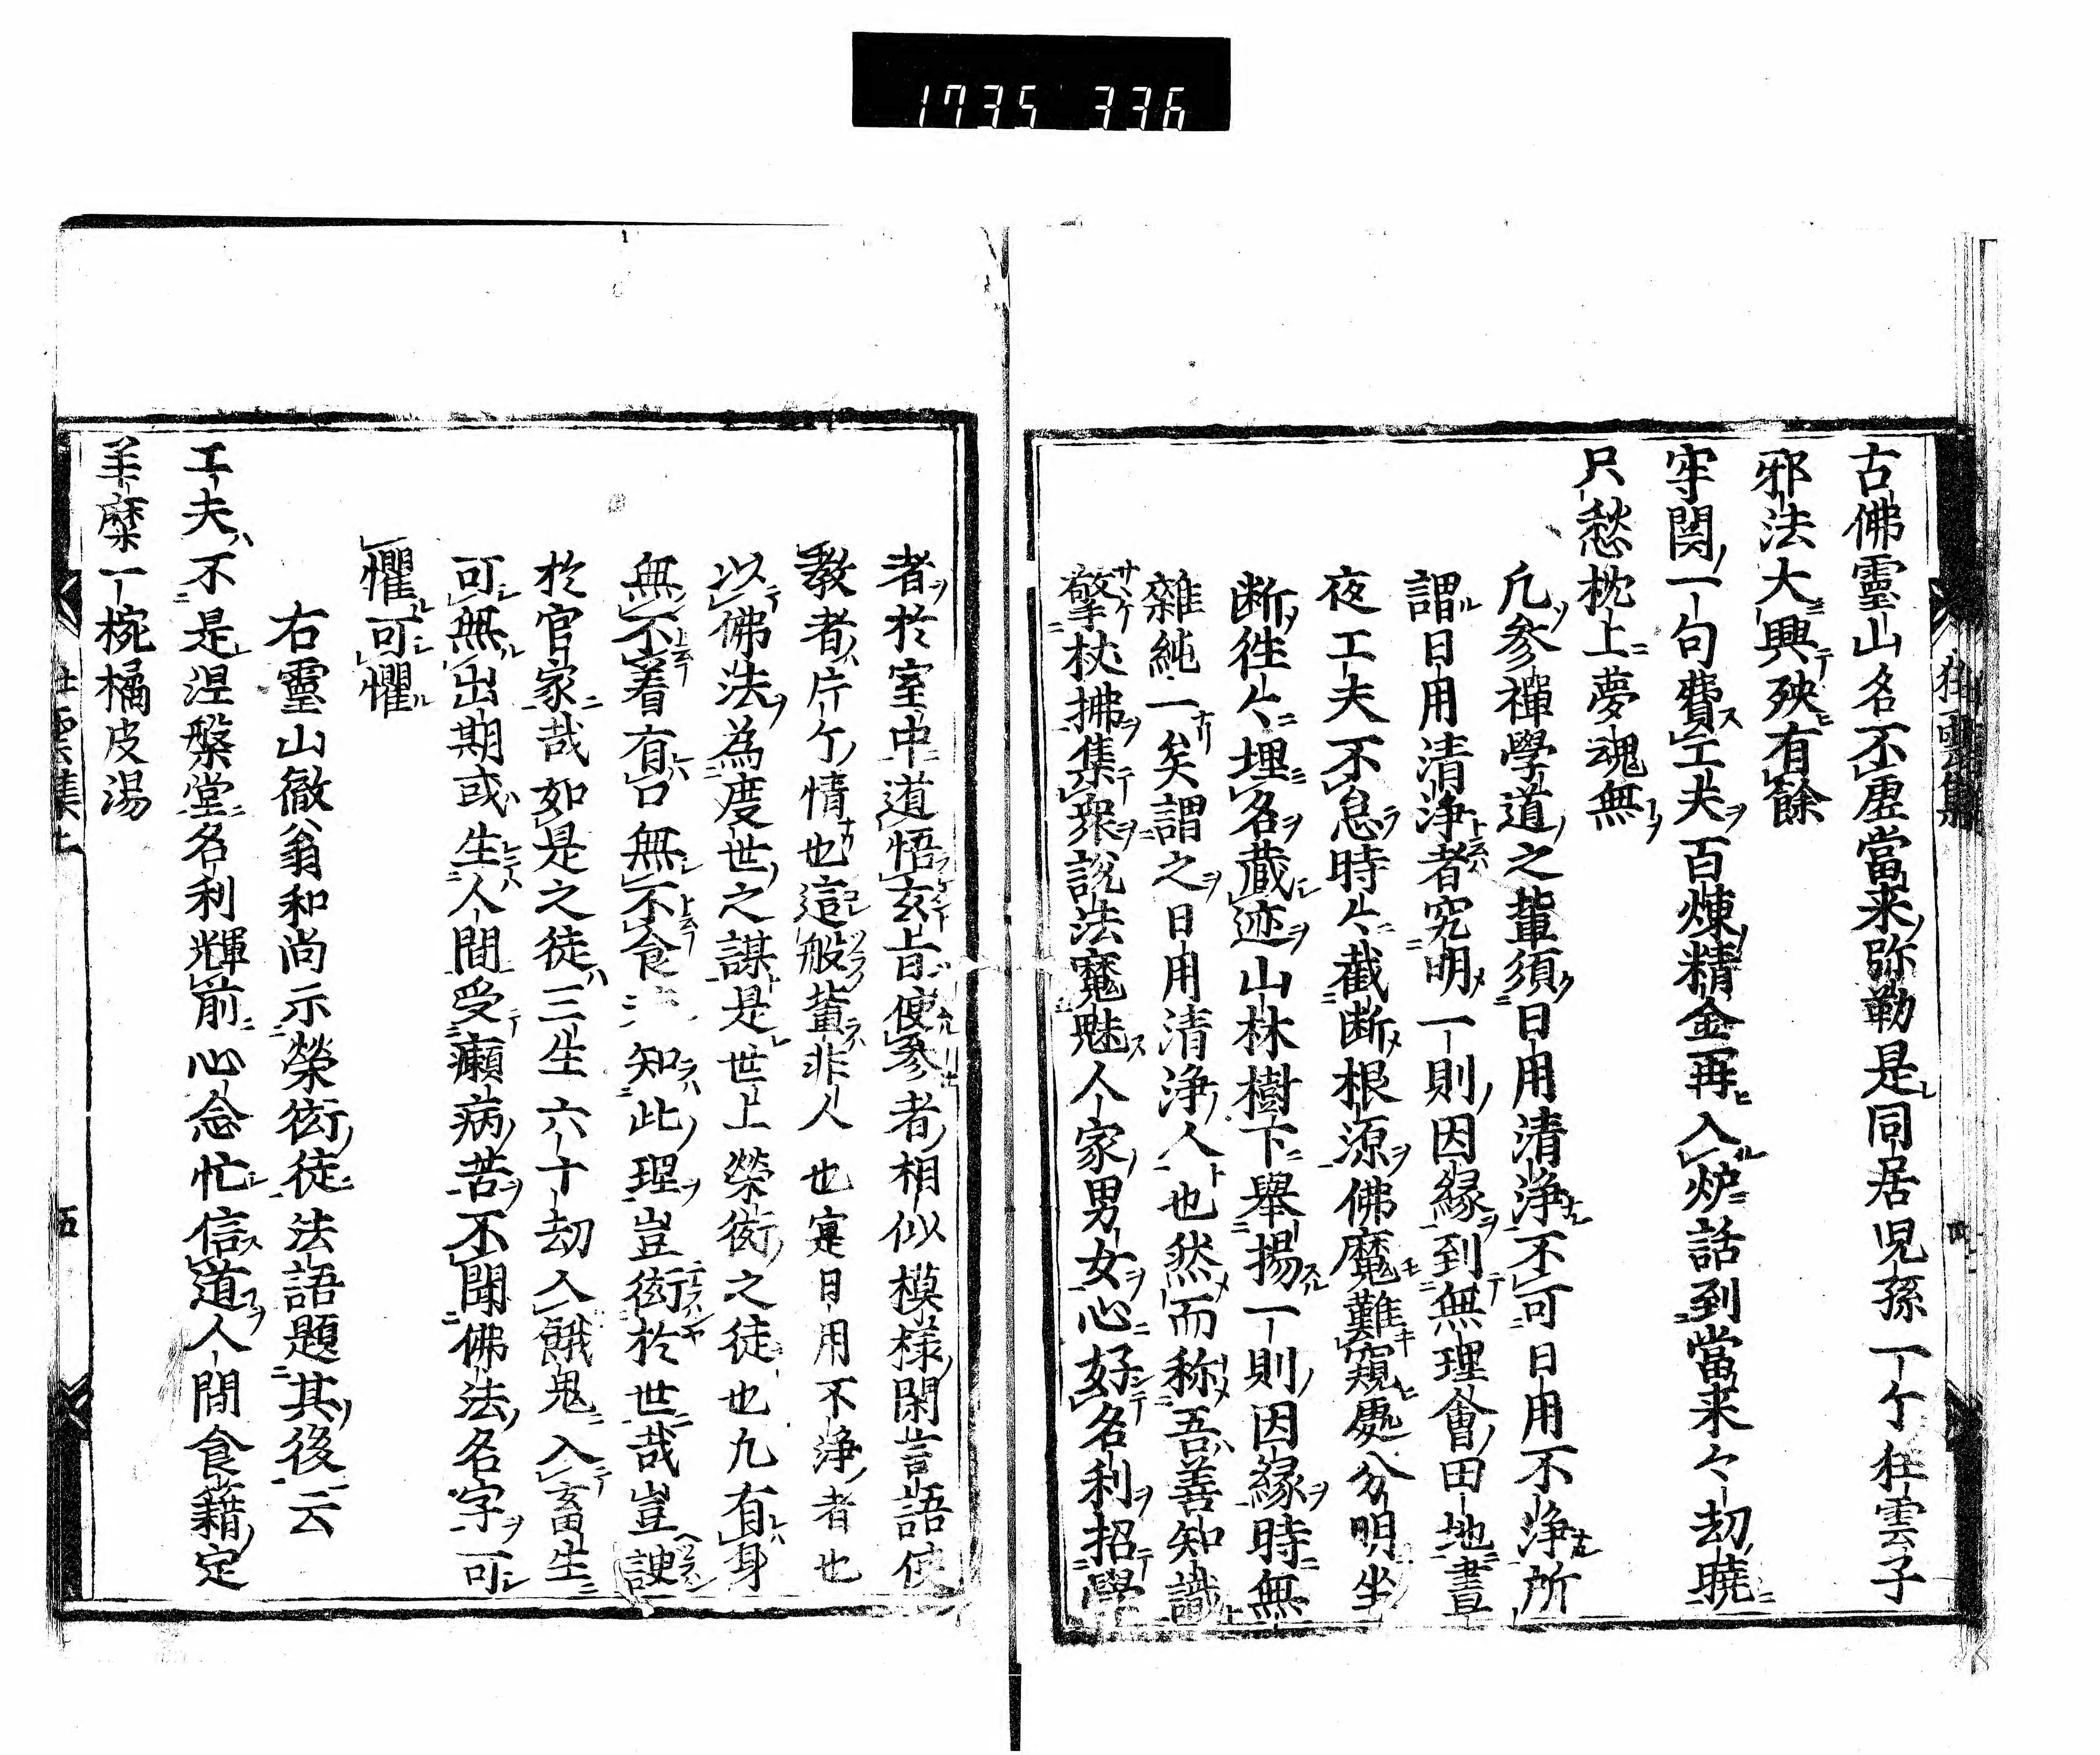 1735 336
狂雲集
四
古佛靈山名不虛當来弥勒是同居児孫一个狂雲子
邪法大興殃有餘
牢関一句費工夫百煉精金再入炉話到當来々劫曉
只愁枕上夢魂無
凢参禪學道之輩須日用清浄不可日用不浄所
謂日用清浄者究明一則因縁到無理會田地晝
夜工夫不怠時々截断根源佛魔難窺處分明坐
断徃々埋名蔵迹山林樹下舉揚一則因縁時無
雜純一矣謂之日用清浄人也然而称吾善知識
擎杖拂集衆説法魔魅人家男女心好名利招學
者於室中道悟玄旨使参者相似模様閑言語使
教者片个情也這般輩非人也寔日用不浄者也
以佛法為度世之謀是世上榮衒之徒也凢有身
無不着有口無不食知此理豈衒於世哉豈諛
於官家哉如是之徒三生六十劫入餓鬼入畜生
可無出期或生人間受癩病苦不聞佛法名字可
懼可懼
右靈山徹翁和尚示榮衒徒法語題其後云
工夫不是涅槃堂名利輝前心念忙信道人間食籍定
羊糜一椀橘皮湯
狂雲集上
五